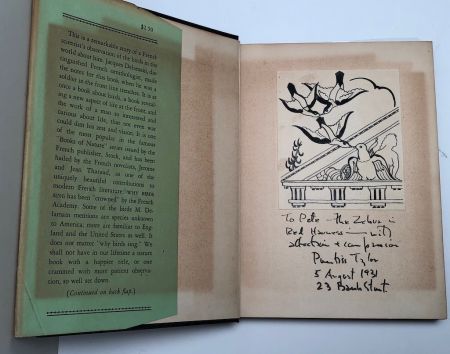 $2.50
This is a remarkable story of a French
scientist's observation of the birds in the
world about him. Jacques Delamain, dis-
tinguished French ornithologist, made
the notes for this book when he was a
soldier in the front line trenches. It is at
once a book about birds, a book reveal-
ing a new aspect of life at the front, and
the work of a man so interested and
curious about life, that not even war
could dim his zest and vision. It is one
of the most popular in the famous
"Books of Nature" series issued by the
French publisher, Stock, and has been
hailed by the French novelists, Jerome
and Jean Tharaud, as one of the
uniquely beautiful contributions to
modern French literature.
has been "crowned" by the French
Academy. Some of the birds M. De-
lamain mentions are species unknown
to America; more are familiar to Eng-
land and the United States as well. It
does not matter "why birds sing." We
shall not have in our lifetime a nature
book with a happier title, or one
crammed with more patient observa-
tion, so well set down.
(Continued on back flap.)
To Pete - the Zebra in
Red Harness - with
affection &
Parker Tyler
5 August 1931
23 Bank Street.